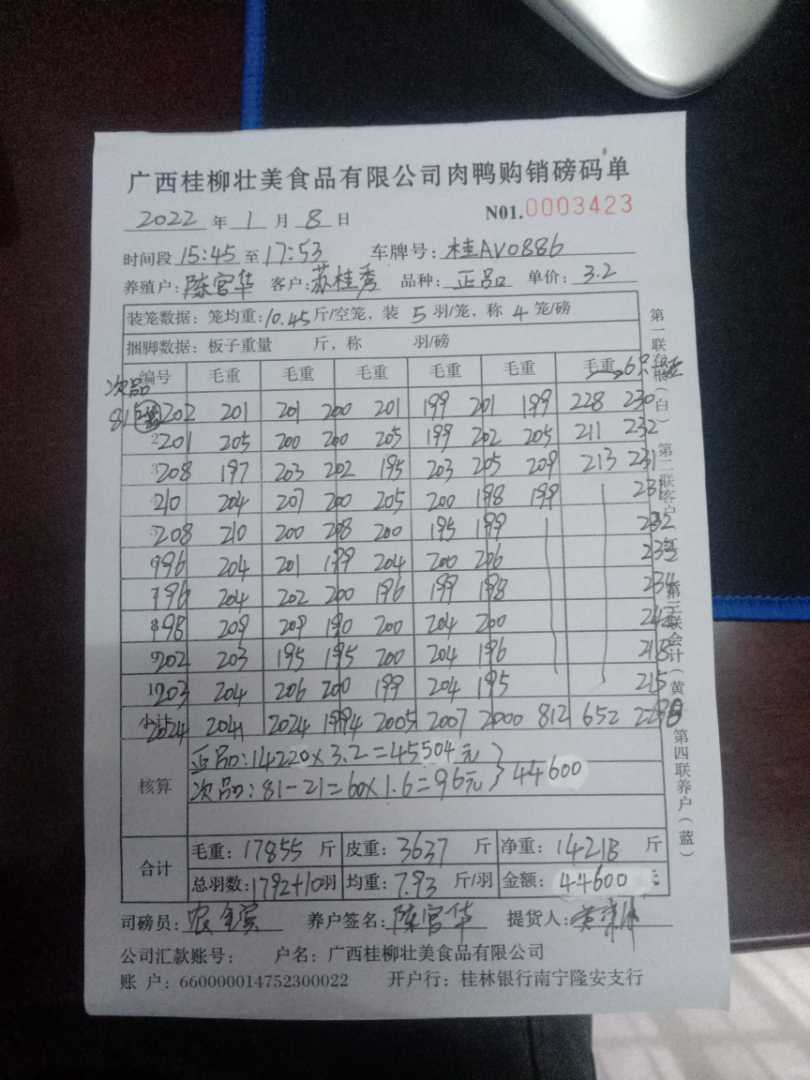 广西桂柳壮美食品有限公司肉鸭购销磅码单
2022 年 1 月 8 日 N01.0003423
时间段 15:45 至 17:53 车牌号: 桂AV0886
养殖户: 陈官华 客户: 苏桂秀 品种: 正品 单价: 3.2
装笼数据: 笼均重: 10.45 斤/空笼, 装 5 羽/笼, 称 4 笼/磅
捆脚数据: 板子重量 斤, 称 羽/磅
编号 毛重 毛重 毛重 毛重 毛重 毛重 6只
次品
81 202 201 201 200 201 199 201 199 228 230
201 205 200 200 205 199 202 205 211 232
208 197 203 202 195 203 205 209 213 231
210 204 207 200 205 200 198 199 231
208 210 200 208 200 195 199 232
996 204 201 199 204 200 206 233
796 204 202 200 196 199 198 234
898 209 209 190 200 204 200 242
202 203 195 195 200 204 196 218
203 204 206 200 199 204 195 215
小计 2024 2041 2024 1994 2005 2007 2000 812 652
核算
正品: 14220×3.2=45504元
次品: 81-21=60×1.6=96元 } 44600
合计
毛重: 17855 斤 皮重: 3637 斤 净重: 14218 斤
总羽数: 1792+10羽 均重: 7.93 斤/羽 金额: 44600 元
司磅员: 农全宾 养户签名: 陈官华 提货人:
公司汇款账号: 户名: 广西桂柳壮美食品有限公司
账 户: 660000014752300022 开户行: 桂林银行南宁隆安支行
第一联存根(白) 第二联客户 第三联会计(黄) 第四联养户(蓝)